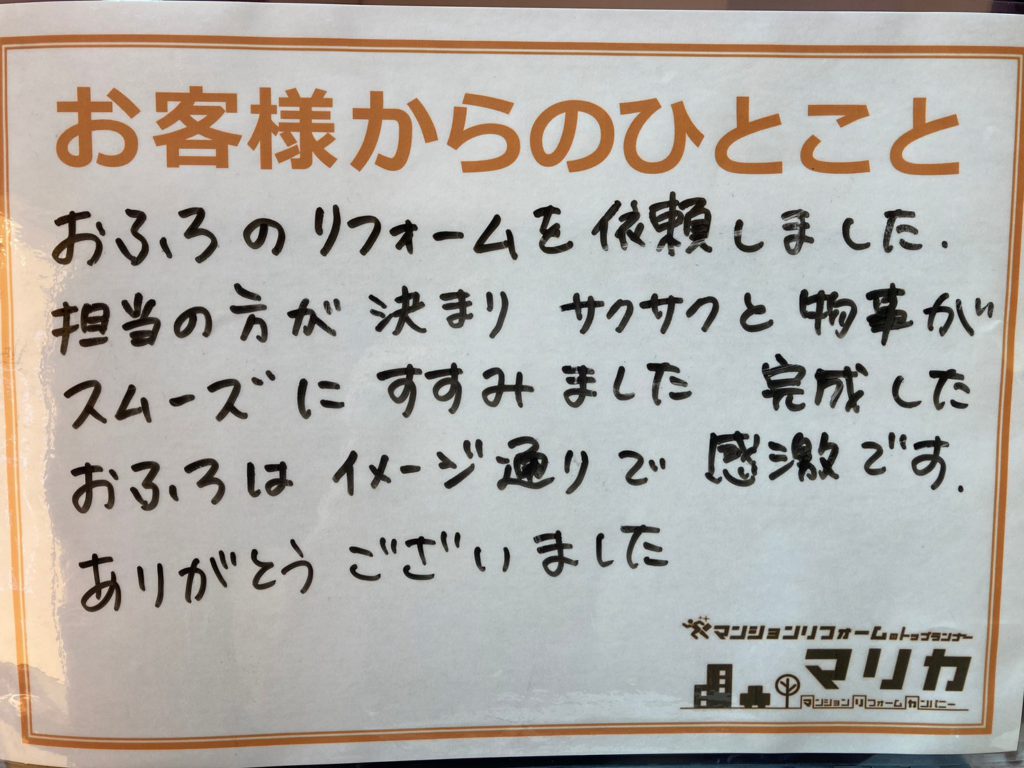 お客様からのひとこと
おふろのリフォームを依頼しました.
担当の方が決まり サクサクと物事が
スムーズにすすみました 完成した
おふろはイメージ通りで感激です.
ありがとうございました
マンションリフォームのトップランナー
マリカ
マンションリフォームカンパニー